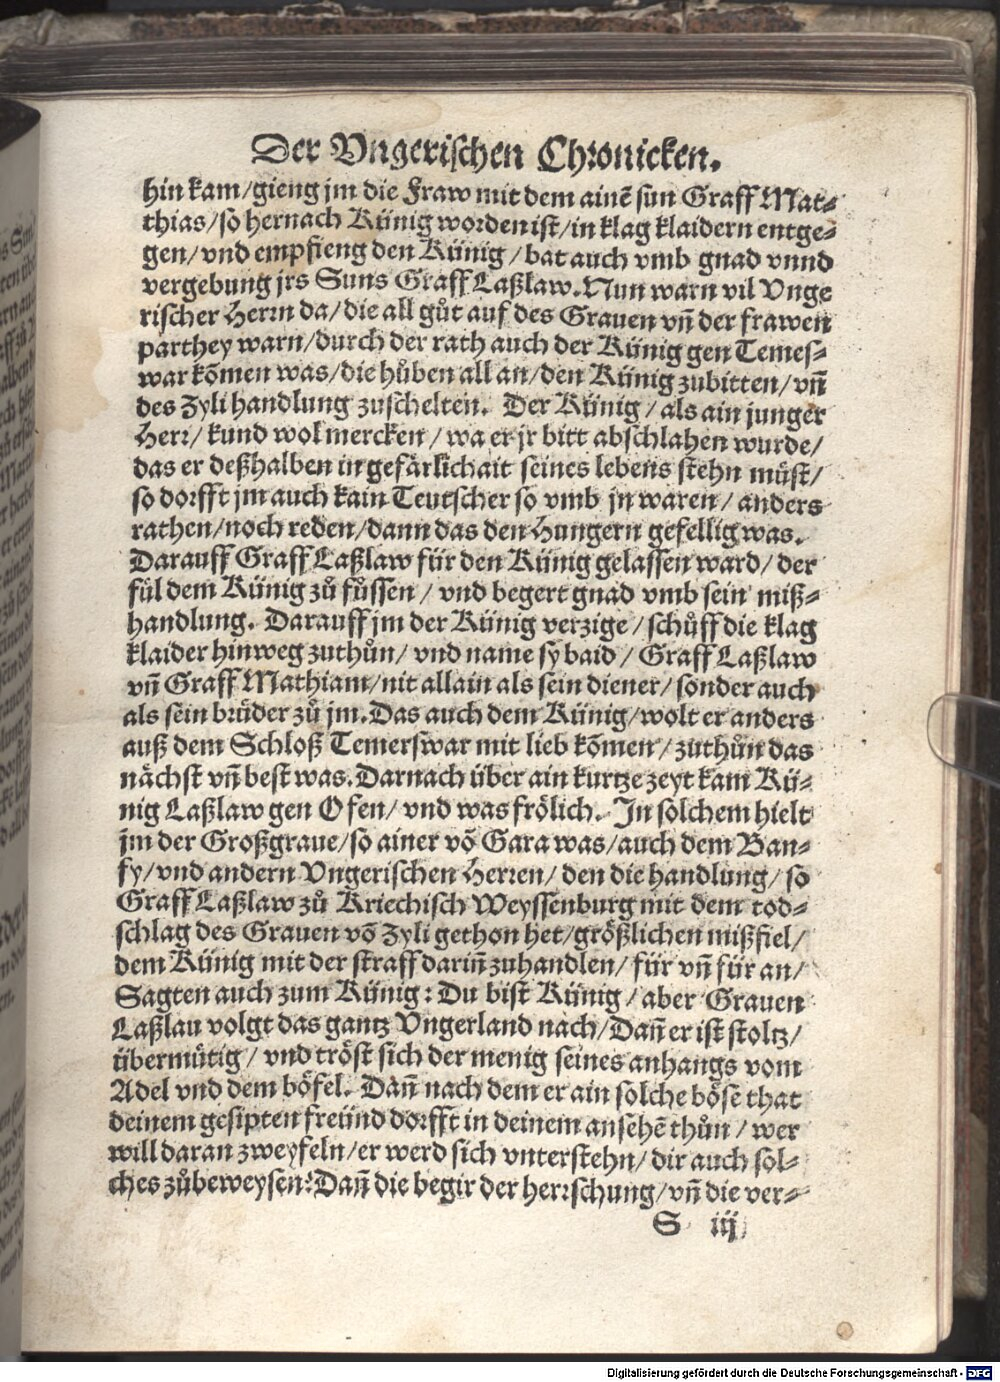 Der Vngerischen Chronicken.
hin kam/gieng jm die Fraw mit dem ainẽ sun Graff Mat⸗
thias/so hernach Künig worden ist/in klag klaidern entge⸗
gen/vnd empfieng den Künig/bat auch vmb gnad vnnd
vergebung jrs Suns Graff Laßlaw. Nun warn vil Vnge
rischer Herrn da/die all gůt auf des Grauen vñ der frawen
parthey warn/durch der rath auch der Künig gen Temes⸗
war kõmen was/die hůben all an/den Künig zubitten/vñ
des Zyli handlung zuschelten. Der Künig/als ain junger
Herr/kund wol mercken/wa er jr bitt abschlahen wurde/
das er deßhalben in gefärlichait seines lebens stehn müst/
so dorfft jm auch kain Teutscher so vmb jn waren/anders
rathen/noch reden/dann das den Hungern gefellig was.
Darauff Graff Laßlaw für den Künig gelassen ward/der
fül dem Künig zů fůssen/vnd begert gnad vmb sein miß⸗
handlung. Darauff jm der Künig verzige/schůff die klag
klaider hinweg zuthůn/vnd name sy baid/Graff Laßlaw
vñ Graff Mathiam/nit allain als sein diener/sonder auch
als sein brüder zů jm. Das auch dem Künig/wolt er anders
auß dem Schloß Temerswar mit lieb kõmen/zuthůn das
nächst vñ best was. Darnach über ain kurtze zeyt kam Kü⸗
nig Laßlaw gen Ofen/vnd was frölich. In solchem hielt
jm der Großgraue/so ainer võ Gara was/auch dem Ban⸗
fy/vnd andern Vngerischen Herren/den die handlung/so
Graff Laßlaw zů Kriechisch Weyssenburg mit dem tod⸗
schlag des Grauen võ Zyli gethon het/größlichen mißfiel/
dem Künig mit der straff dariñ zuhandlen/für vñ für an/
Sagten auch zum Künig: Du bist Künig/aber Grauen
Laßlau volgt das gantz Vngerland nach/Dañ er ist stoltz/
übermütig/vnd tröst sich der menig seines anhangs vom
Adel vnd dem böfel. Dañ nach dem er ain solche böse that
deinem gesipten freünd dorfft in deinem ansehẽ thůn/wer
will daran zweyfeln/er werd sich vnterstehn/dir auch sol⸗
ches zůbeweysen? Dañ die begir der herrschung/vñ die ver⸗
S iij
Digitalisierung gefördert durch die Deutsche Forschungsgemeinschaft - DFG